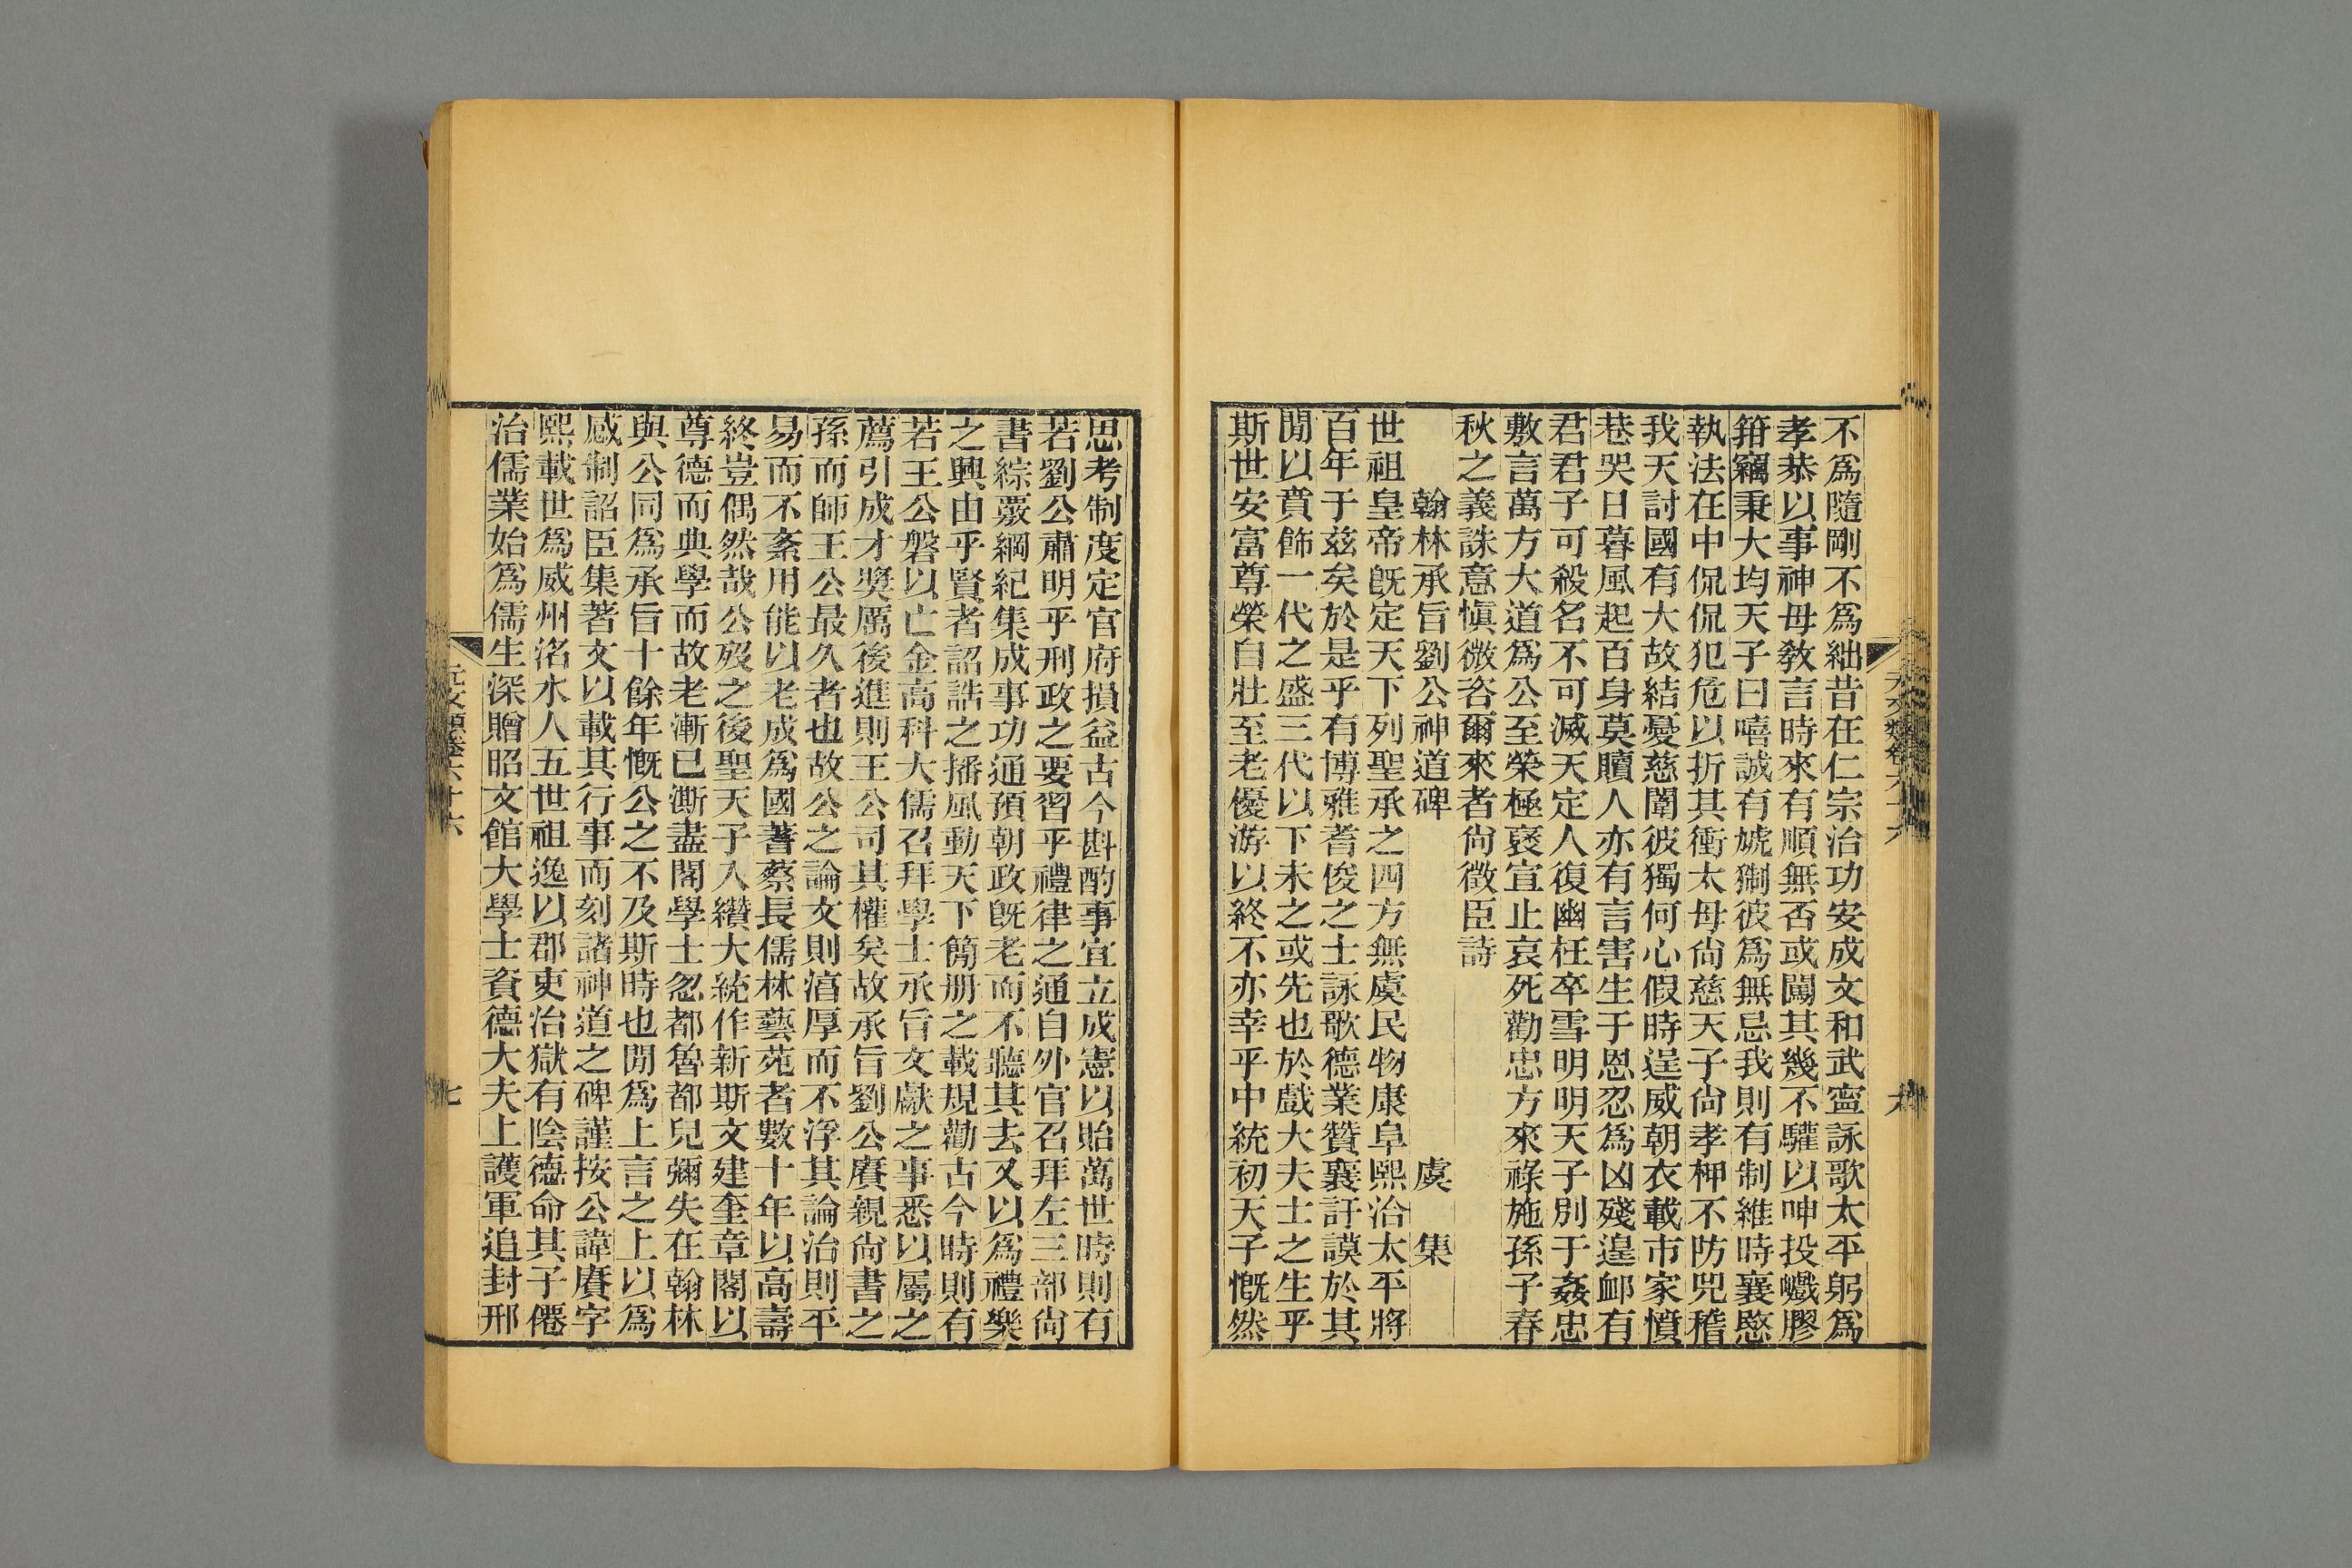 不爲隨剛不爲絀昔在仁宗治功安成文和武寧詠歌太平躬爲
孝恭以事神母敎言時來有順無否或闖其幾不驩以呻投蠟膠
箝竊秉大均天子曰嘻誠有虓猘彼爲無忌我則有制維時襄愍
執法在中侃侃犯危以折其衝太母尙慈天子尙孝柙不防兕稽
我天討國有大故結憂慈闈彼獨何心假時逞威朝衣載市家憤
巷哭日暮風起百身莫贖人亦有言害生于恩忍爲凶殘遑卹有
君君子可殺名不可滅天定人復幽枉卒雪明明天子別于姦忠
敷言萬方大道爲公至榮極褒宣止哀死勸忠方來祿施孫子春
秋之義誅意愼微咨爾來者尙徵臣詩
翰林承旨劉公神道碑 虞集
世祖皇帝旣定天下列聖承之四方無虞民物康阜熙洽太平將
百年于茲矣於是乎有博雅耆俊之士詠歌德業贊襄訏謨於其
閒以賁飾一代之盛三代以下未之或先也於戲大夫士之生乎
斯世安富尊榮自壯至老優游以終不亦幸乎中統初天子慨然
思考制度定官府損益古今斟酌事宜立成憲以貽萬世時則有
若劉公肅明乎刑政之要習乎禮律之通自外官召拜左三部尙
書綜覈綱紀集成事功通預朝政旣老而不聽其去又以爲禮樂
之興由乎賢者詔誥之播風動天下簡册之載規勸古今時則有
若王公磐以亡金高科大儒召拜學士承旨文獻之事悉以屬之
薦引成才奬厲後進則王公司其權矣故承旨劉公賡親尙書之
孫而師王公最久者也故公之論文則渲厚而不浮其論治則平
易而不紊用能以老成爲國蓍蔡長儒林藝苑者數十年以高壽
終豈偶然哉公歿之後聖天子入纘大統作新斯文建奎章閣以
尊德而典學而故老漸已澌盡閣學士忽都魯都兒彌失在翰林
與公同爲承旨十餘年慨公之不及斯時也閒爲上言之上以爲
感制詔臣集著文以載其行事而刻諸神道之碑謹按公諱賡字
熙載世爲威州洺水人五世祖逸以郡吏治獄有陰德命其子僊
治儒業始爲儒生深贈昭文館大學士資德大夫上護軍追封邢
元文類卷六十六
七